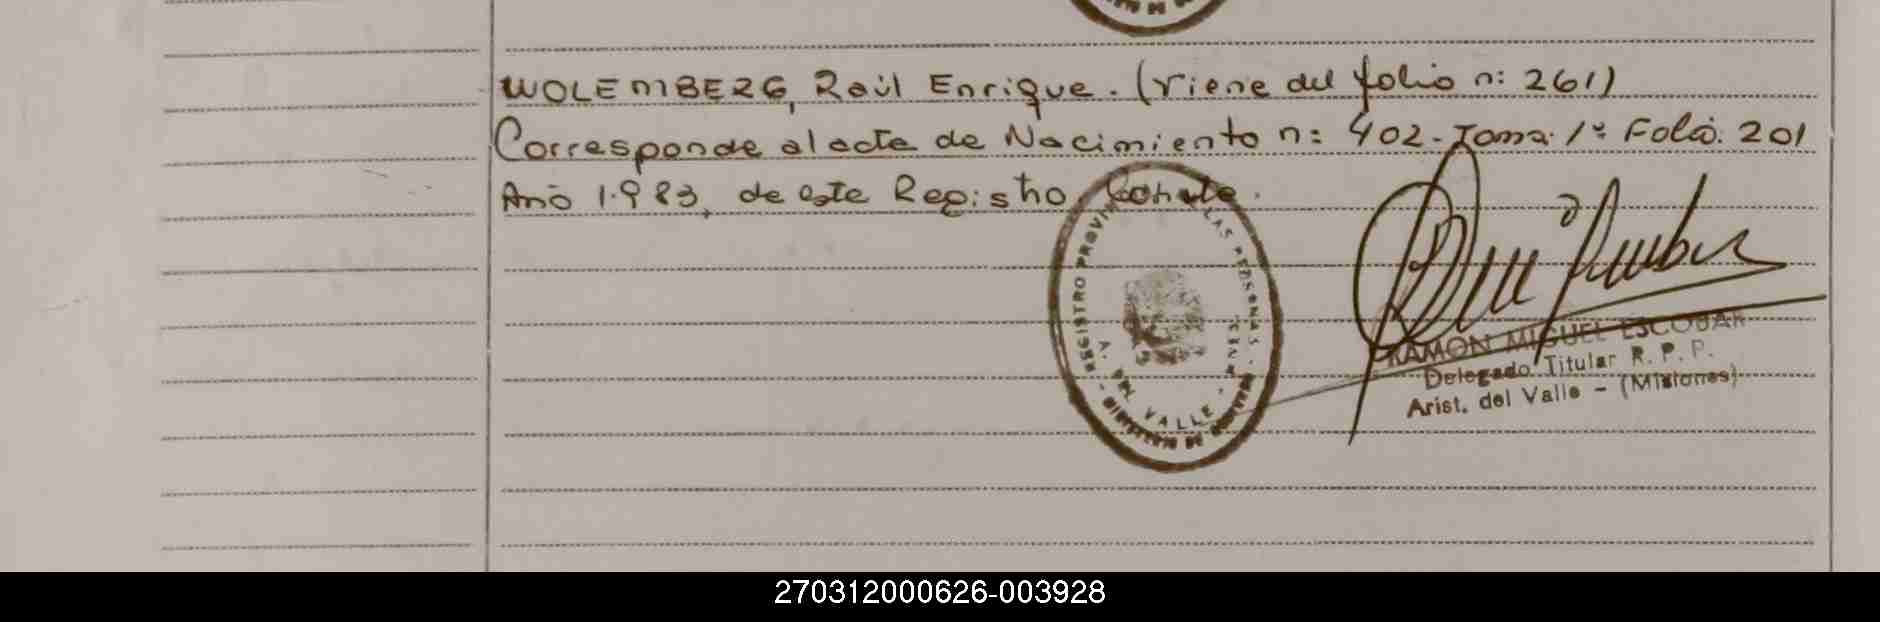 WOLEMBERG, Raúl Enrique. (Viene del folio n: 261)
Corresponde al acta de Nacimiento n: 402 - Tomo: 1º Folio: 201
Año 1.983, de este Registro
REGISTRO PROVINCIAL DE LAS PERSONAS
A. DEL VALLE
MINISTERIO DE GOBIERNO
RAMON MIGUEL ESCOBAR
Delegado Titular R. P. P.
Arist. del Valle - (Misiones)
270312000626-003928